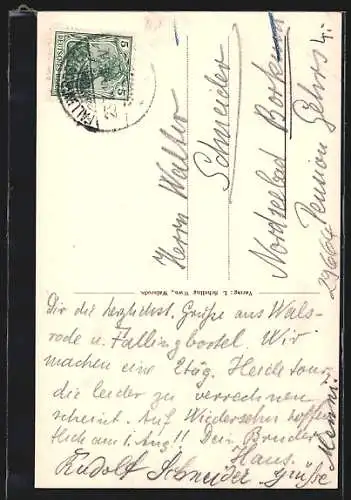 Herrn Walter
Schneider
Nordseebad Borkum
Pension Gehrs
Verlag: L. Schelling Wwe., Walsrode.
Dir die herzlichst. Grüße aus Wals-
rode u. Fallingbostel. Wir
machen eine 2täg. Heidetour,
die leider zu verrechnen
scheint. Auf Wiedersehn hoffen
tlich am 1. Aug!! Dein Bruder
Hans.
Rudolf Schneider Grüße
5 5